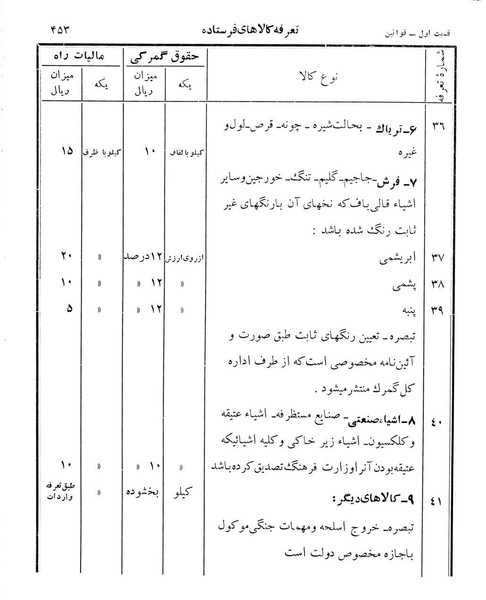 قسمت اول ـ قوانین تعرفه کالاهای فرستاده ۴۵۳
شمارهٔ تعرفه نوع کالا حقوق گمرکی مالیات راه
یکه میزان ریال یکه میزان ریال
۳۶ ۶ـ تریاك ـ بحالت شیره ـ چونه ـ قرص ـ لول و
غیره کیلو با لفاف ۱۰ کیلو با ظرف ۱۵
۷ـ فرش ـ جاجیم ـ گلیم ـ تنگ ـ خورجین و سایر
اشیاء قالی باف که نخهای آن با رنگهای غیر
ثابت رنگ شده باشد :
۳۷ ابریشمی از روی ارزش ۱۲ درصد » ۲۰
۳۸ پشمی » ۱۲ » » ۱۰
۳۹ پنبه » ۱۲ » » ۵
تبصره ـ تعیین رنگهای ثابت طبق صورت و
آئین‌نامه مخصوصی است که از طرف اداره
کل گمرك منتشر میشود .
۴۰ ۸ـ اشیاء صنعتی ـ صنایع مستظرفه ـ اشیاء عتیقه
و کلکسیون ـ اشیاء زیر خاکی و کلیه اشیائیکه
عتیقه بودن آنرا وزارت فرهنگ تصدیق کرده باشد » ۱۰ » » ۱۰
۴۱ ۹ـ کالاهای دیگر : کیلو بخشوده » طبق تعرفه واردات
تبصره ـ خروج اسلحه و مهمات جنگی موکول
باجازه مخصوص دولت است